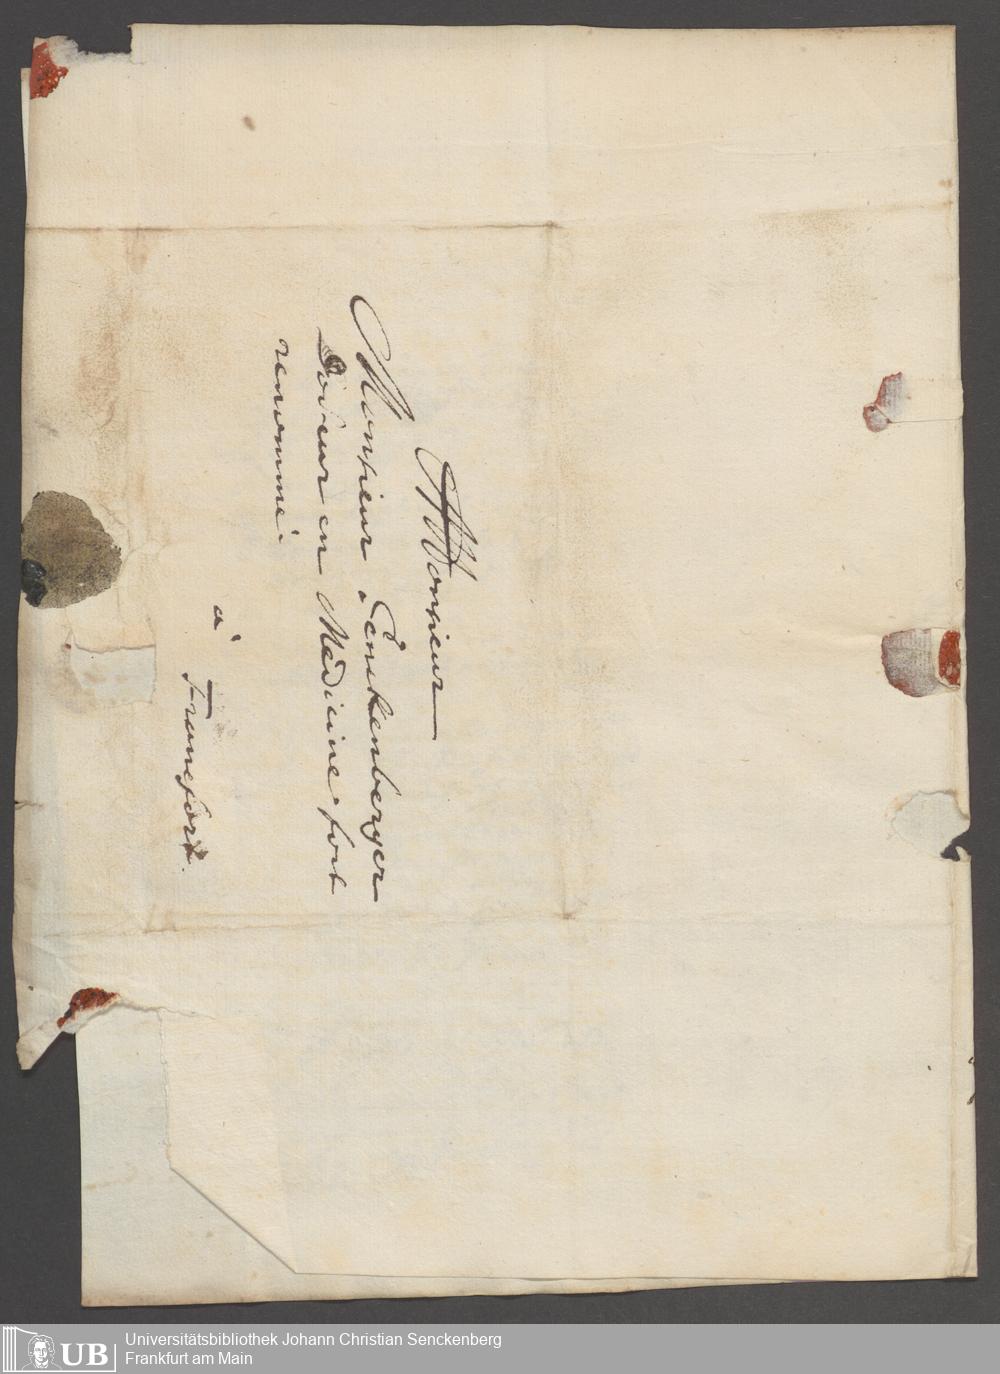 Monsieur
Monsieur Senckenberger
Docteur en Médicine fort
renommé.
à
Francfort.
Universitätsbibliothek Johann Christian Senckenberg
Frankfurt am Main
UB